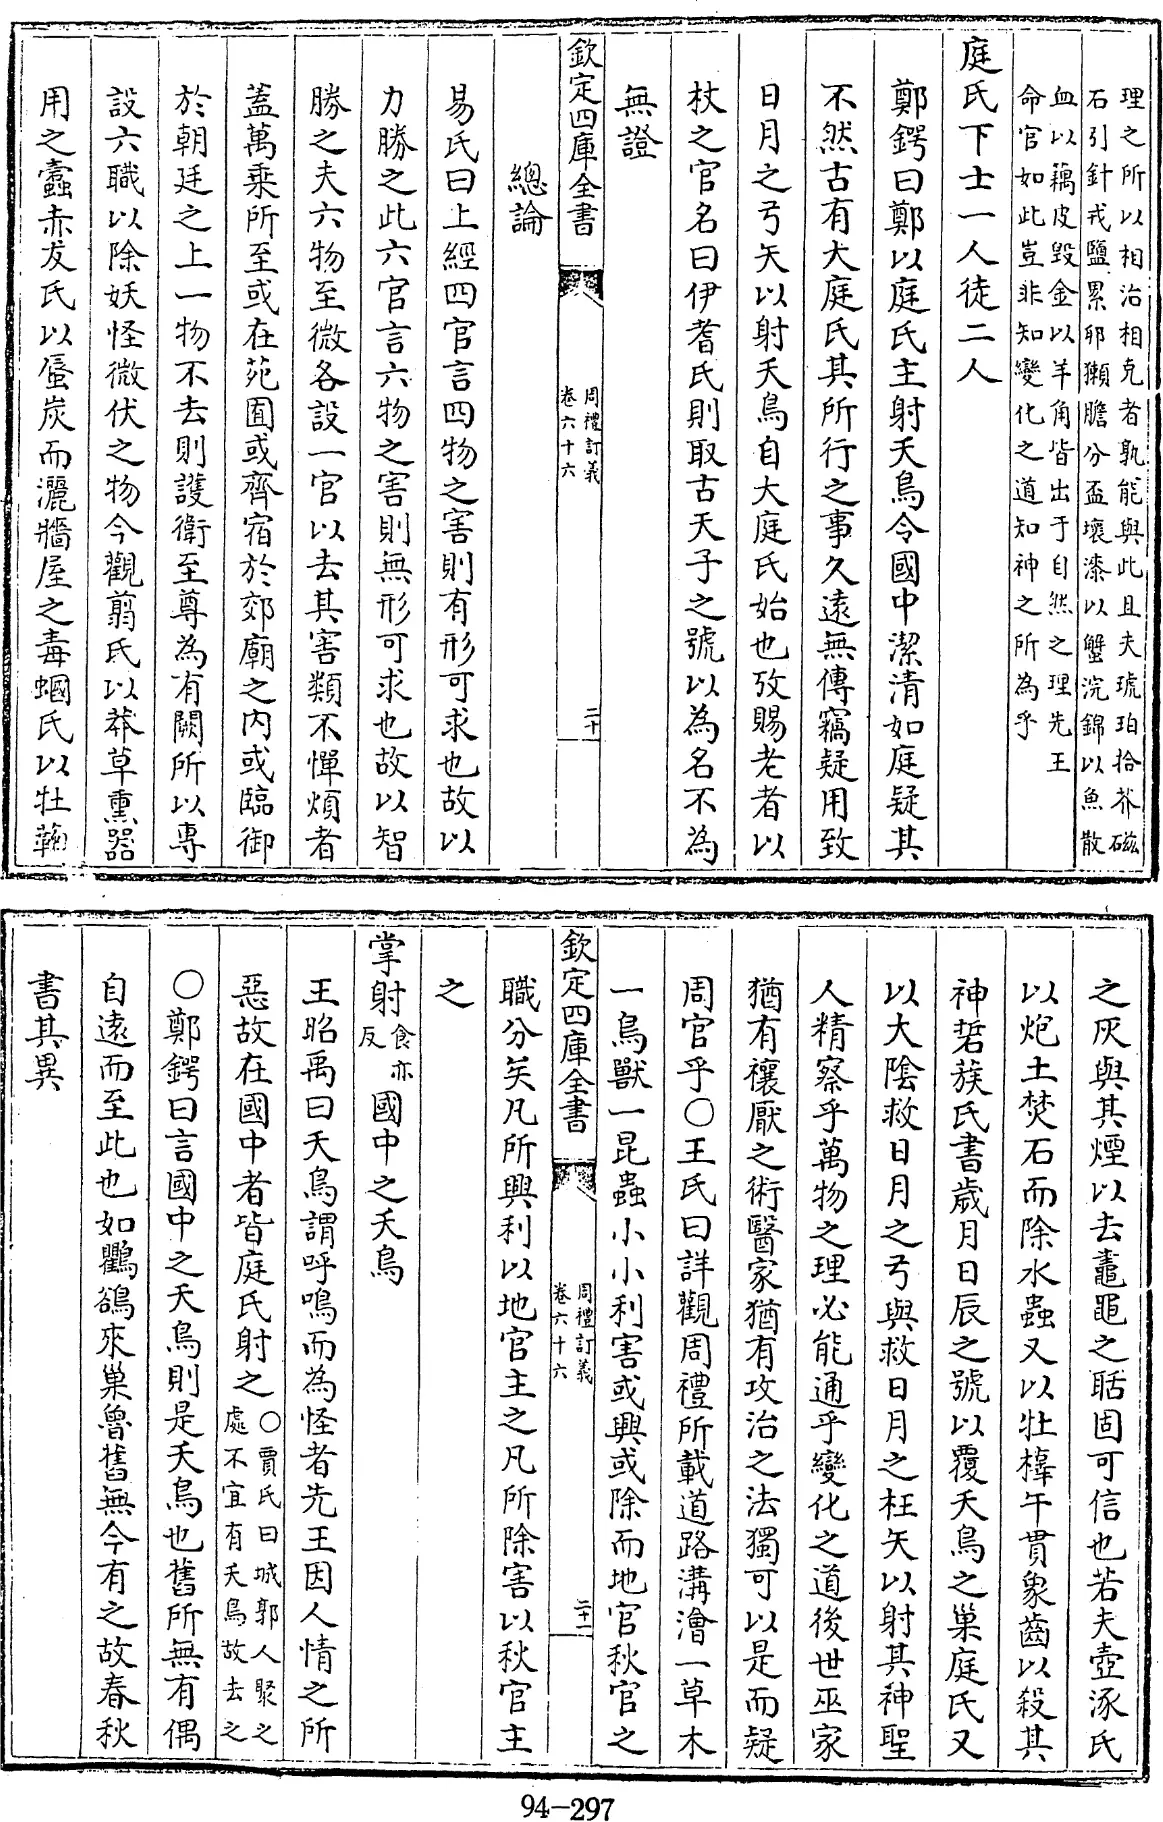 理之所以相治相克者孰能與此且夫琥珀拾芥磁
石引針戎鹽累卵獺膽分盃壞漆以蟹浣錦以魚散
血以藕皮毀金以羊角皆出于自然之理先王
命官如此豈非知變化之道知神之所為乎
庭氏下士一人徒二人
鄭鍔曰鄭以庭氏主射夭鳥令國中潔清如庭疑其
不然古有大庭氏其所行之事久遠無傳竊疑用致
日月之弓矢以射夭鳥自大庭氏始也攷賜老者以
杖之官名曰伊耆氏則取古天子之號以為名不為
無證
欽定四庫全書
周禮訂義
卷六十六
二十
總論
易氏曰上經四官言四物之害則有形可求也故以
力勝之此六官言六物之害則無形可求也故以智
勝之夫六物至微各設一官以去其害類不憚煩者
蓋萬乘所至或在苑囿或齊宿於郊廟之內或臨御
於朝廷之上一物不去則護衛至尊為有闕所以專
設六職以除妖怪微伏之物今觀翦氏以莽草熏器
用之蠹赤犮氏以蜃炭而灑牆屋之毒蟈氏以牡蘜
之灰與其煙以去鼃黽之聒固可信也若夫壺涿氏
以炮土焚石而除水蟲又以牡橭午貫象齒以殺其
神硩蔟氏書歲月日辰之號以覆夭鳥之巢庭氏又
以大陰救日月之弓與救日月之枉矢以射其神聖
人精察乎萬物之理必能通乎變化之道後世巫家
猶有禳厭之術醫家猶有攻治之法獨可以是而疑
周官乎○王氏曰詳觀周禮所載道路溝澮一草木
一鳥獸一昆蟲小小利害或興或除而地官秋官之
欽定四庫全書
周禮訂義
卷六十六
二十一
職分矣凡所興利以地官主之凡所除害以秋官主
之
掌射食亦反國中之夭鳥
王昭禹曰夭鳥謂呼鳴而為怪者先王因人情之所
惡故在國中者皆庭氏射之○賈氏曰城郭人聚之處不宜有夭鳥故去之
○鄭鍔曰言國中之夭鳥則是夭鳥也舊所無有偶
自遠而至此也如鸜鵒來巢魯舊無今有之故春秋
書其異
94-297